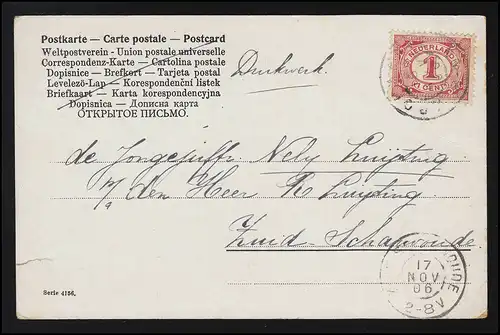 Postkarte — Carte postale — Postcard
Weltpostverein - Union postale universelle
Correspondenz-Karte — Cartolina postale
Dopisnice - Brefkort - Tarjeta postal
Levelező-Lap — Korespondenční listek
Briefkaart — Karta korespondencyjna
Dopisnica — Дописна карта
ОТКРЫТОЕ ПИСЬМО.
Drukwerk.
NEDERLAND
1
CENT
de Jongejuffr. Nely Luijting
p/a den Heer R Luijting
Zuid Scharwoude
17
NOV
06
2-8 V
Serie 4156.